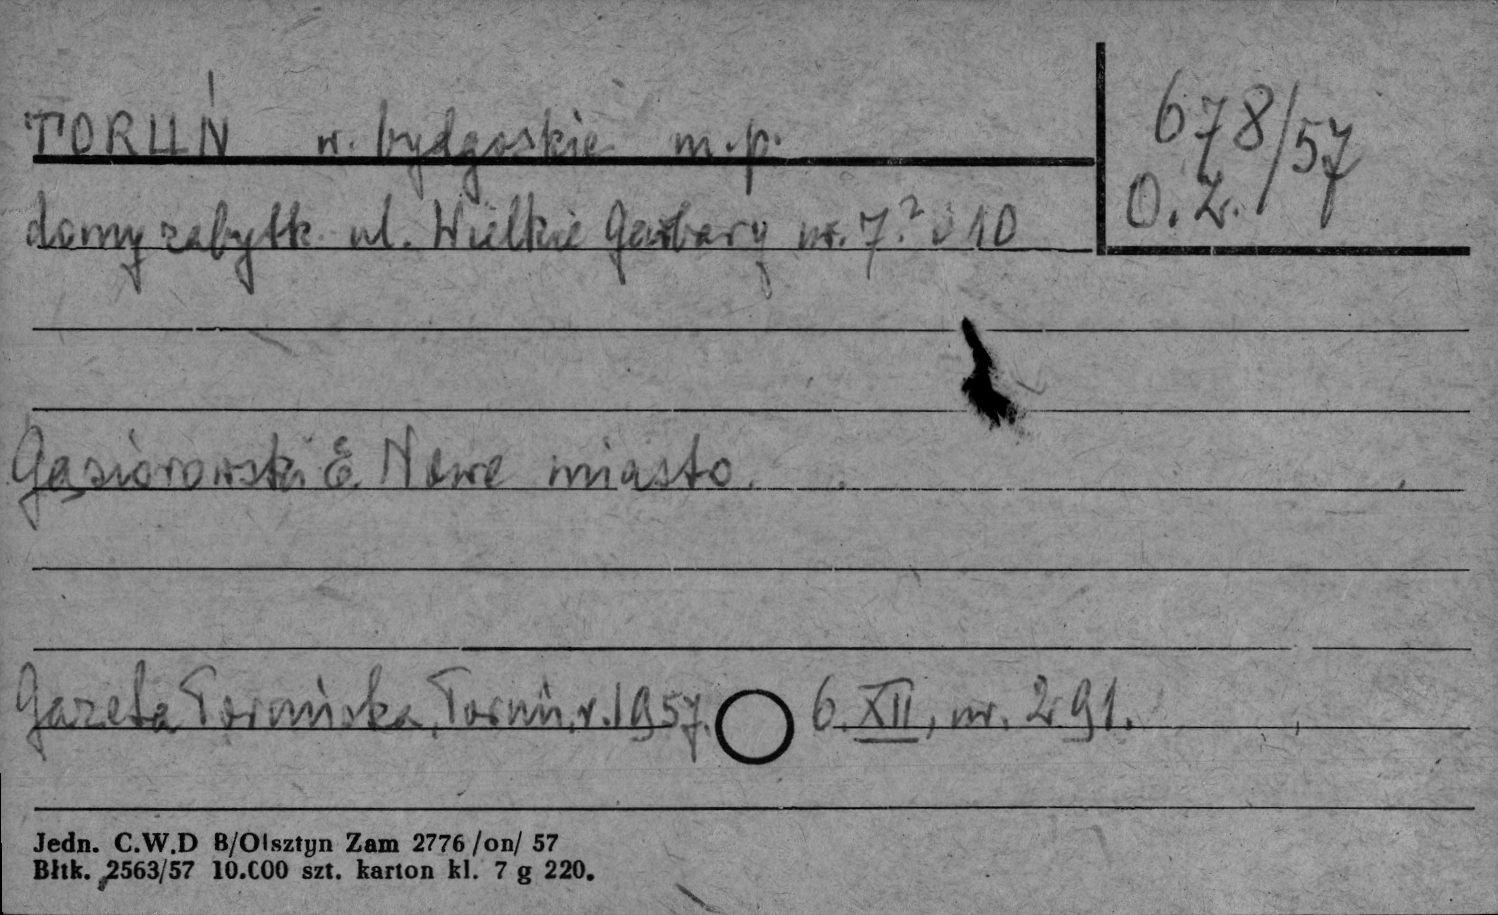 TORUŃ w. bydgoskie m.p.
678/57
O.Z.
domy zabytk. ul. Wielkie Garbary nr. 7? i 10
Gąsiorowski E. Nowe miasto.
Gazeta Toruńska, Toruń, r. 1957. 6. XII, nr. 291.
Jedn. C.W.D B/Olsztyn Zam 2776 /on/ 57
Błtk. 2563/57 10.000 szt. karton kl. 7 g 220.